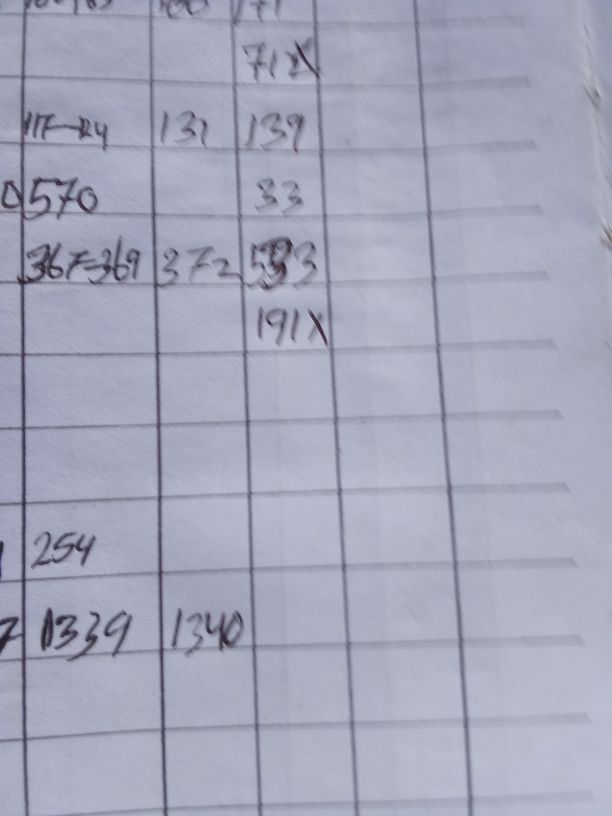 171
712X
117-124 131 139
0 570 33
367-369 372 3
191X
254
7 1339 1340